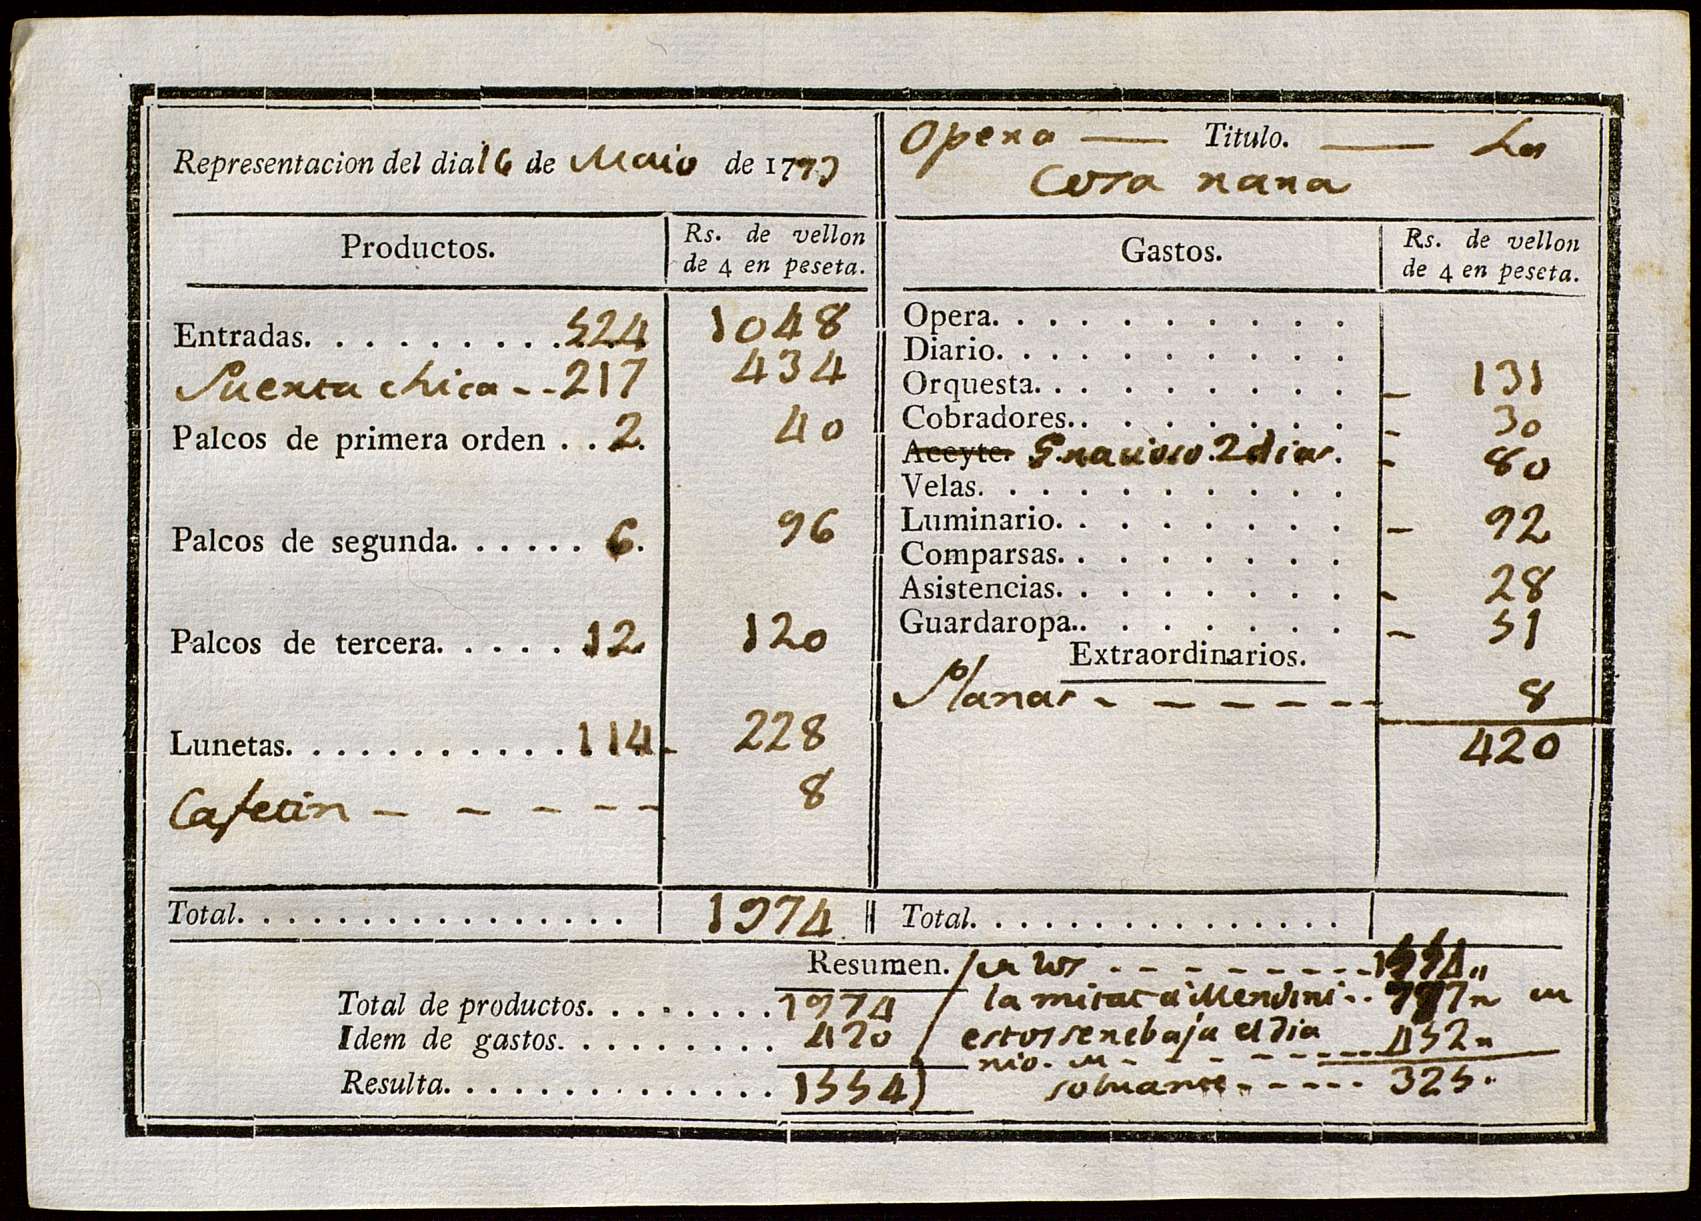 Representacion del dia 16 de Maio de 1779
Opera — Titulo. — La
Cosa rara
Productos.
Rs. de vellon
de 4 en peseta.
Entradas. . . . . . . . . . 524 1048
Puerta chica - - 217 434
Palcos de primera orden . . 2. 40
Palcos de segunda. . . . . . 6. 96
Palcos de tercera. . . . . 12 120
Lunetas. . . . . . . . . . . . 114 - 228
Cafetin - - - - - - 8
Total. . . . . . . . . . . . . . . . 1974
Gastos.
Rs. de vellon
de 4 en peseta.
Opera. . . . . . . . . . .
Diario. . . . . . . . . . .
Orquesta. . . . . . . . . . - 131
Cobradores.. . . . . . . . - 30
Aceyte. Gracioso 2 dias. - 80
Velas. . . . . . . . . . .
Luminario. . . . . . . . . - 92
Comparsas. . . . . . . . .
Asistencias. . . . . . . . - 28
Guardaropa.. . . . . . . . - 51
Extraordinarios.
Planas - - - - - - 8
420
Total. . . . . . . . . . . . . . .
Resumen.
Total de productos. . . . . . . . 1974
Idem de gastos. . . . . . . . . 420
Resulta. . . . . . . . . . . . . . 1554)
en los - - - - - - - - 1554"
la mitat a Mendini . . 777" en
estos se rebaja el dia
rio. en - - - - - - 452"
sobrante - - - - - 325.